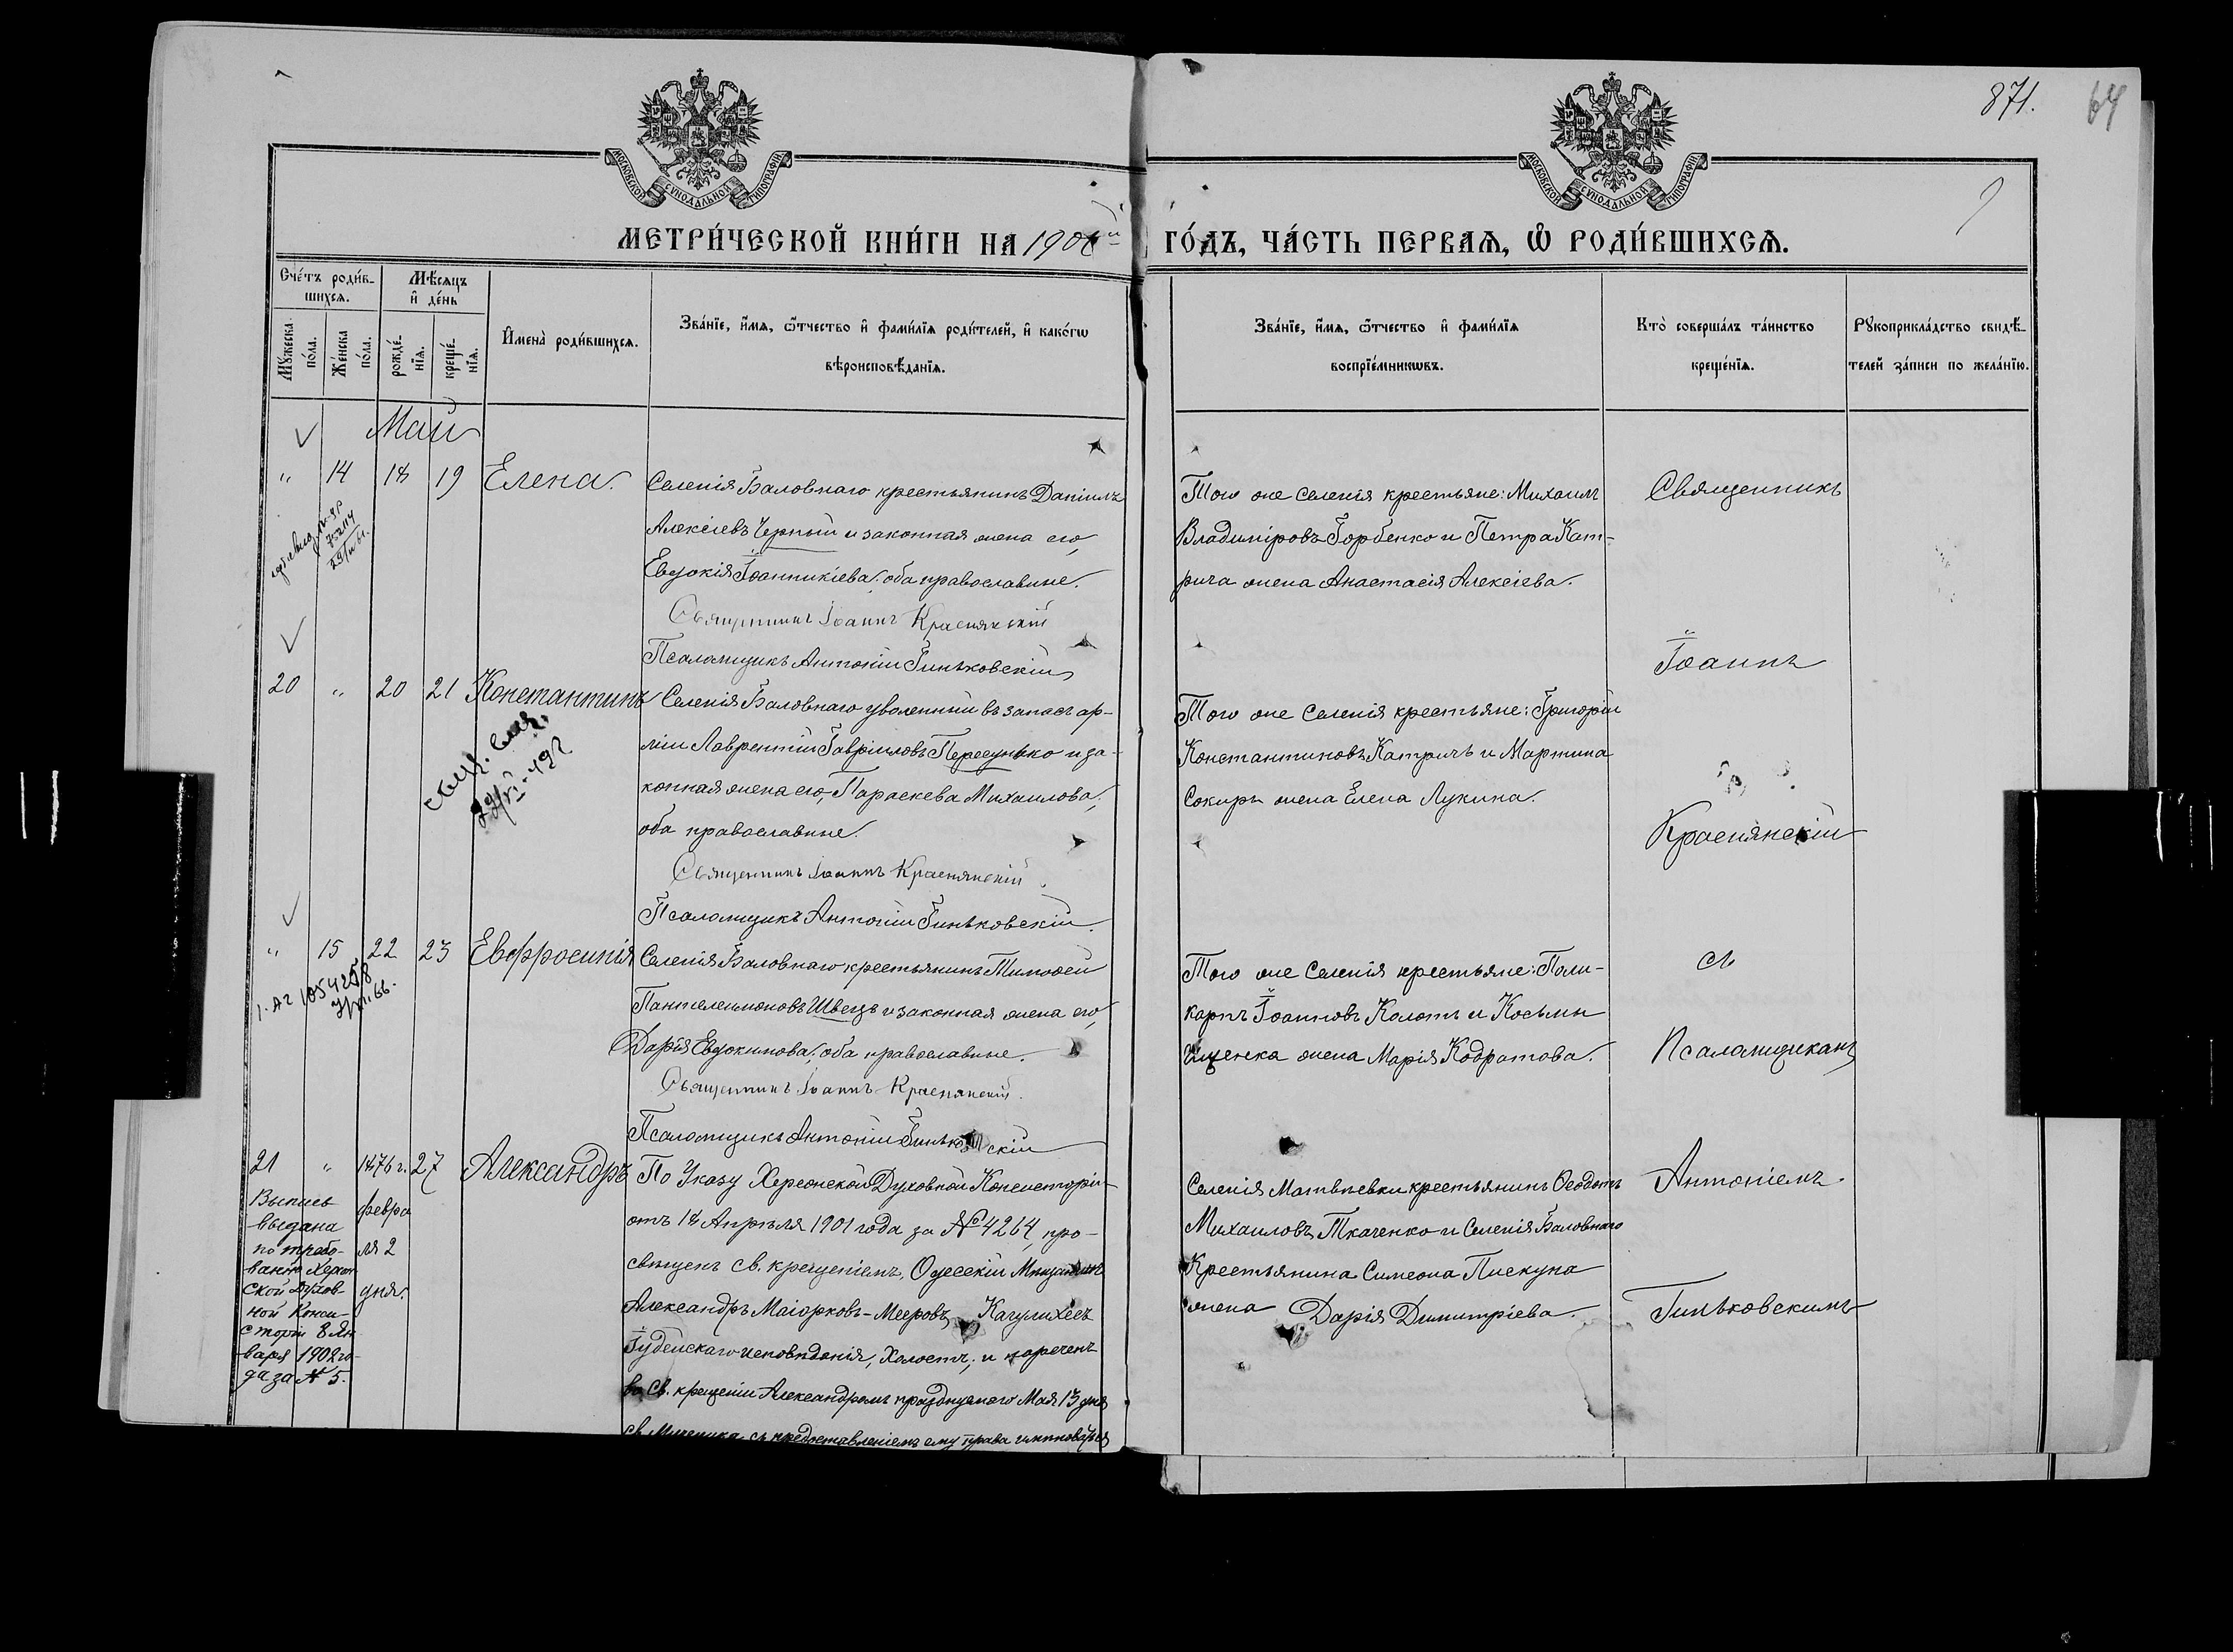 871.
64
МОСКОВСКОЙ СѴНОДАЛЬНОЙ ТИПОГРАФІИ
МОСКОВСКОЙ СѴНОДАЛЬНОЙ ТИПОГРАФІИ
МЕТРИ́ЧЕСКОЙ КНИ́ГИ НА 190 й ГО́ДЪ, ЧА́СТЬ ПЕРВАѦ, Ѡ РОДИ́ВШИХСѦ.
Сче́тъ роди́в-
шихсѧ.
Мѣ́сѧцъ
и҆ де́нь
Мꙋ́жеска по́ла.
Же́нска по́ла.
рожде́нїѧ.
креще́нїѧ.
И҆мена̀ роди́вшихсѧ.
Зва́нїе, и҆́мѧ, ѻ҆́тчество и҆ фами́лїѧ роди́телей, и҆ како́гѡ
вѣроисповѣ́данїѧ.
Зва́нїе, и҆́мѧ, ѻ҆́тчество и҆ фами́лїѧ
воспрїе́мникѡвъ.
Кто̀ соверша́лъ та́инство
креще́нїѧ.
Рꙋкоприкла́дство свидѣ́-
телей за́писи по жела́нїю.
Май
" 14 18 19 Елена.
Селенія Баловнаго крестьянинъ Даніилъ
Алексіевъ Черный и законная жена его,
Евдокія Іоанникіева; оба православные.
Священникъ Іоаннъ Краснянскій
Псаломщикъ Антоній Гиньковскій
Того же селенія крестьяне: Михаилъ
Владиміровъ Горбенко и Петра Кат-
рича жена Анастасія Алексіева.
Священникъ
Іоаннъ
20 " 20 21 Константинъ
Селенія Баловнаго уволенный въ запасъ ар-
міи Лаврентій Гавріиловъ Пересунько и за-
конная жена его, Параскева Михаилова;
оба православные.
Священникъ Іоаннъ Краснянскій.
Псаломщикъ Антоній Гиньковскій.
Того же Селенія крестьяне: Григорій
Константиновъ Катричъ и Мартина
Сокиры жена Елена Лукина.
Краснянскій
" 15 22 23 Евфросинія
1054258
Селенія Баловнаго крестьянинъ Тимоѳей
Пантелеимоновъ Швецъ и законная жена его,
Дарія Евдокимова; оба православные.
Священникъ Іоаннъ Краснянскій.
Псаломщикъ Антоній скій
Того же Селенія крестьяне: Поли-
карпъ Іоанновъ Колотъ и Космы
Ищенка жена Марія Кодратова.
съ
Псаломщикомъ
21 " 1876 г. 27 Александръ
февра
ля 2
дня.
Выпись
выдана
по требо-
ванію Херсон
ской Духов-
ной Конси-
сторіи 8 Ян
варя 1902 го-
да за № 5.
По Указу Херсонской Духовной Консисторіи
отъ 18 Апрѣля 1901 года за № 4264, про-
свѣщенъ св. крещеніемъ, Одесскій Мѣщанинъ
Александръ Маіорковъ-Мееровъ
Іудейскаго исповѣданія, Холостъ; и нареченъ
во Св. крещеніи Александромъ празднуемаго Мая 13 дня
св. Мученика, съ предоставленіемъ ему права именоваться
Селенія Матвѣевки крестьянинъ Ѳеодотъ
Михаиловъ Ткаченко и Селенія Баловнаго
Крестьянина Симеона Пискуна
жена Дарія Димитріева.
Антоніемъ
Гиньковскимъ